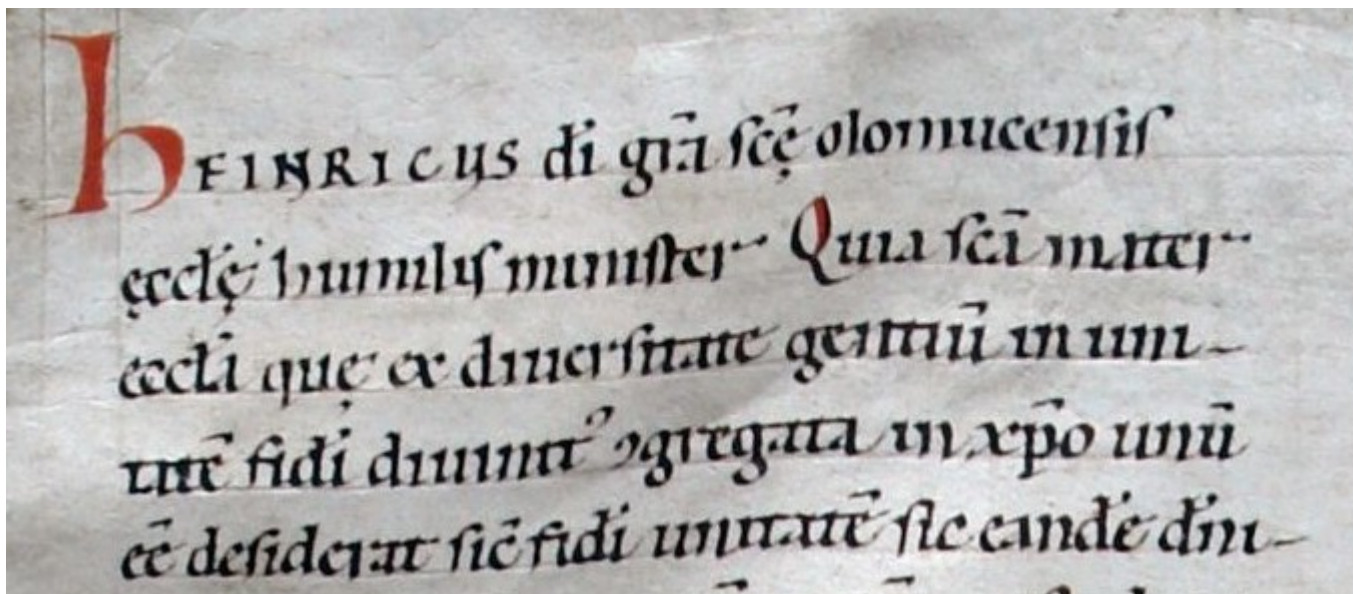 hEINRICUS di grā scē olomucensis
ęcclę humilis minister Quia scā mater
ęccla que ex diuersitate gentiū in uni-
tatē fidi diuinit᾽ ꝯgregata in xp̄o unū
eē desiderat sič fidi unitatē sic eandē dīu-